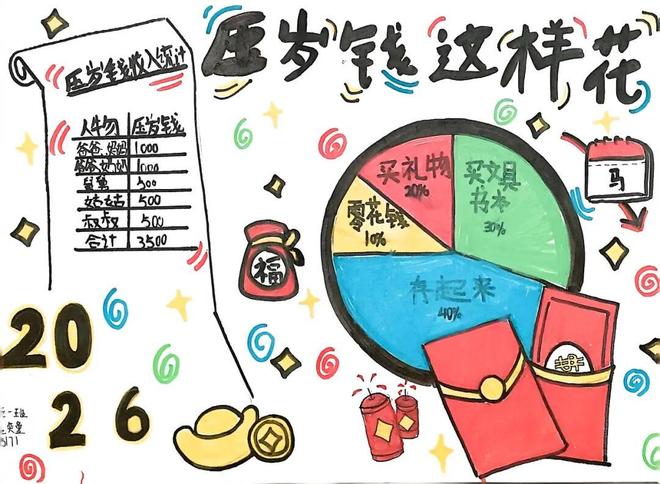 压岁钱这样花
压岁钱收入统计
人物 压岁钱
爸爸、妈妈 1000
爷爷、奶奶 1000
舅舅 500
姑姑 500
叔叔 500
合计 3500
买礼物
20%
买文具
书本
30%
零花钱
10%
存起来
40%
马
福
2026
一班